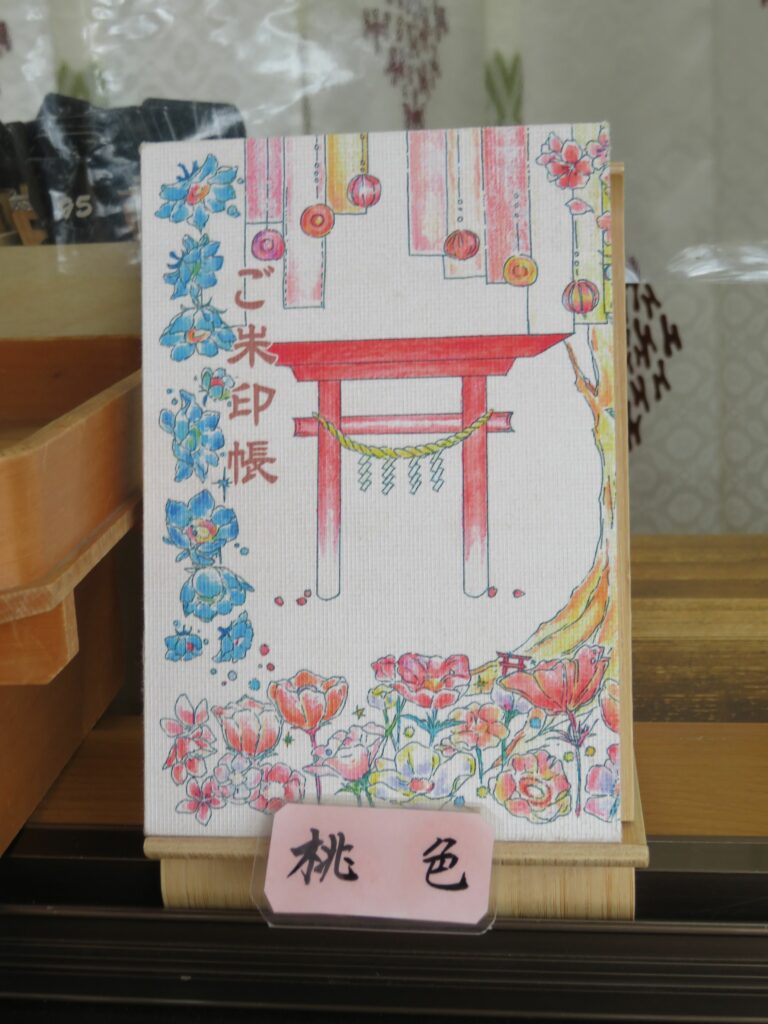 ご朱印帳
桃色
95